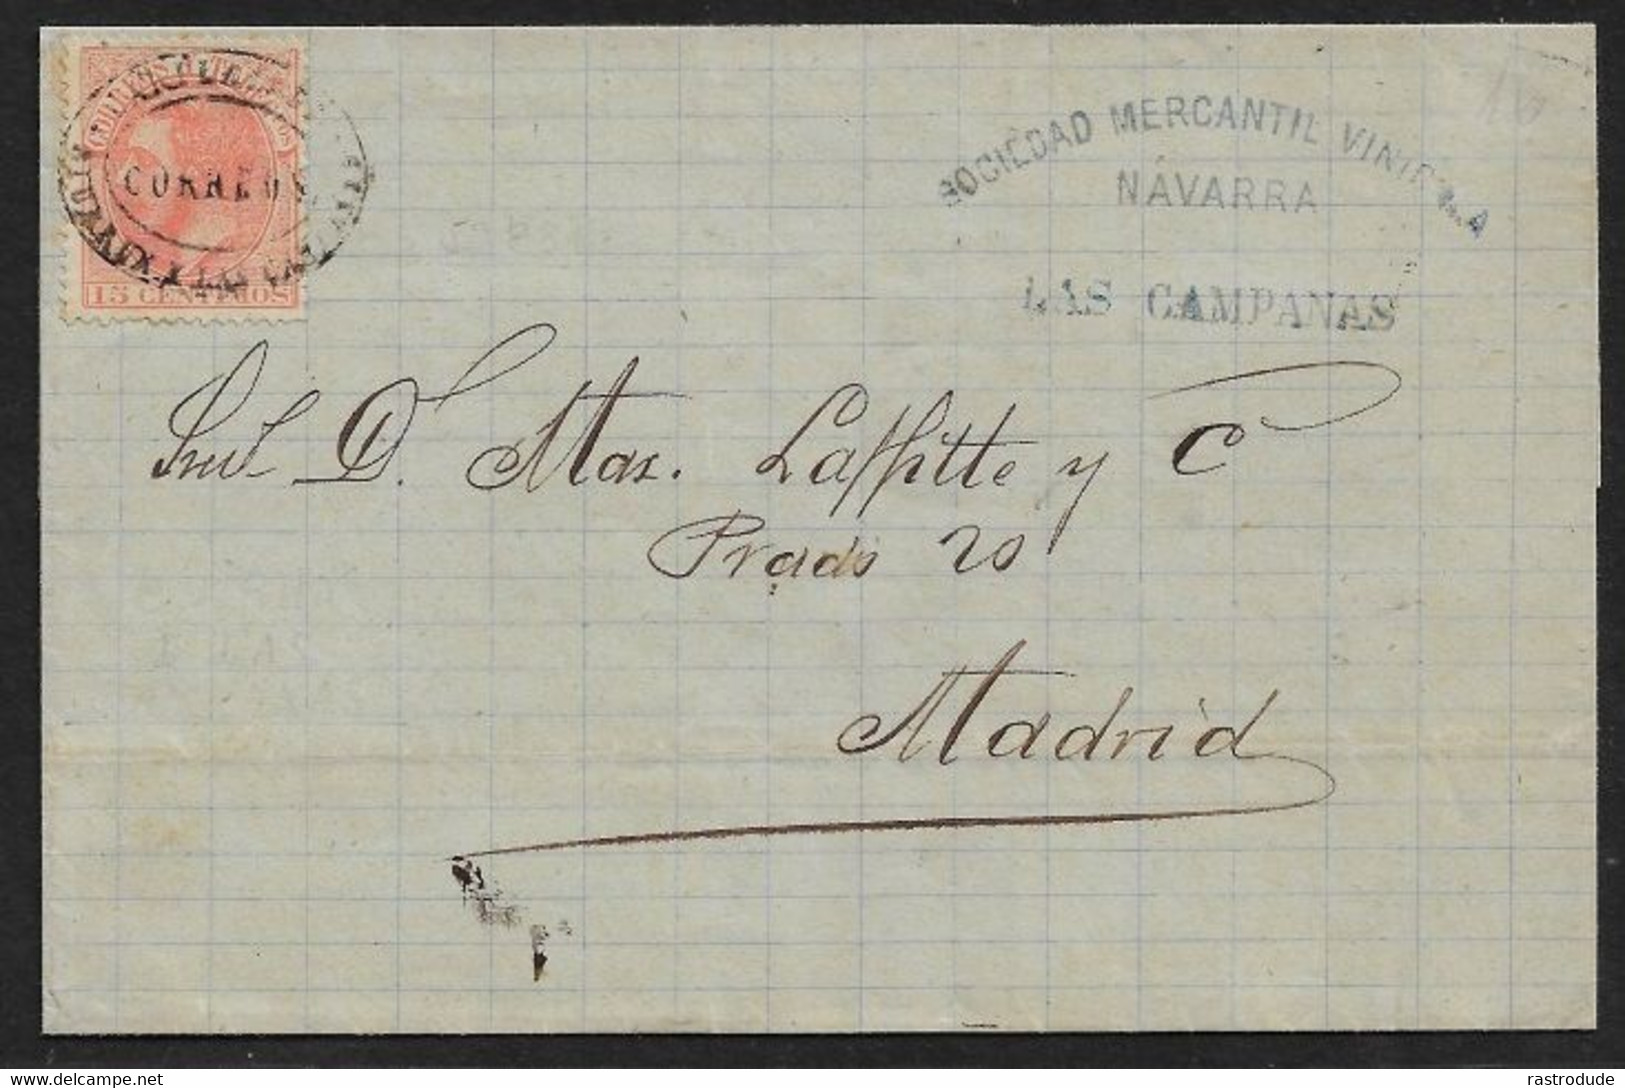 CORREOS
15 CENTIMOS
SOCIEDAD MERCANTIL VINICOLA
NAVARRA
LAS CAMPANAS
D. Max. Laffitte y C
Prado 20
Madrid
delcampe.net
rastrodude